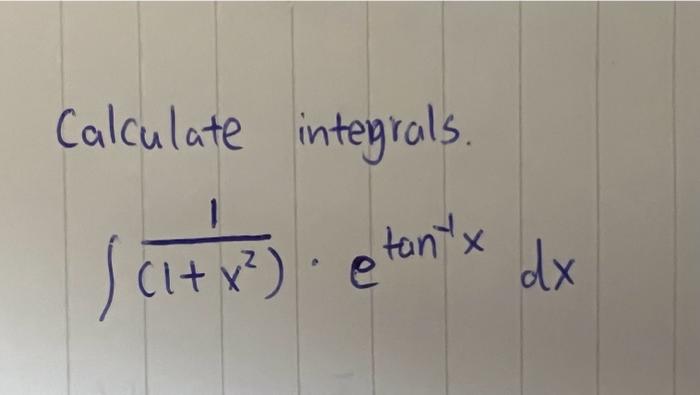 Calculate integrals.
∫ 1/(1+x²) · e^(tan⁻¹x) dx